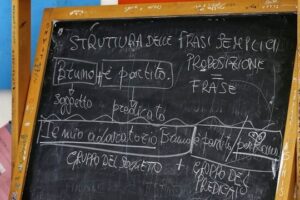 STRUTTURA DELLE FRASI SEMPLICI
Bruno è partito.
PROPOSIZIONE
=
FRASE
soggetto
predicato
Il mio Bruno è partito per
GRUPPO DEL SOGGETTO + GRUPPO DEL
PREDICATO